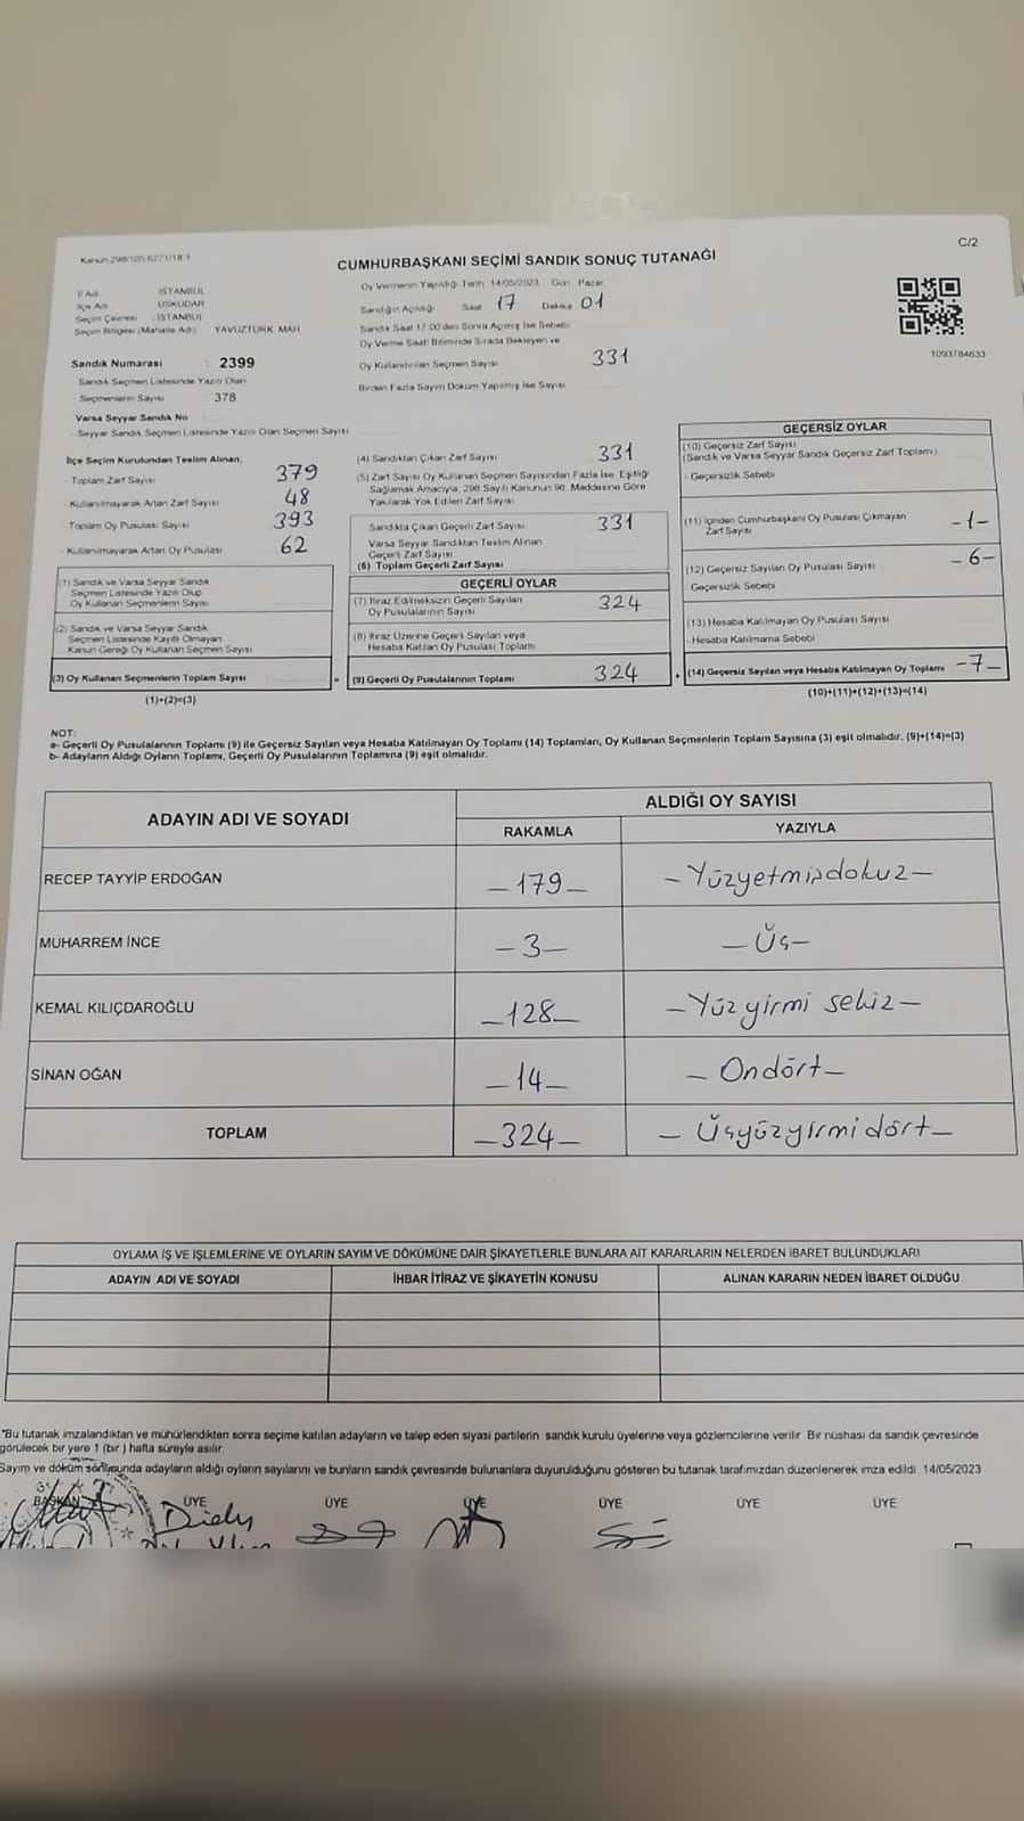 C/2
CUMHURBAŞKANI SEÇİMİ SANDIK SONUÇ TUTANAĞI
Oy Vermenin Yapıldığı Tarih 14/05/2023 Gün Pazar
İl Adı İSTANBUL
İlçe Adı ÜSKÜDAR
Seçim Çevresi İSTANBUL
Seçim Bölgesi (Mahalle Adı) YAVUZTÜRK MAH
Sandığın Açıldığı Saat 17 Dakika 01
Sandık Saat 17:00'den Sonra Açılmış İse Sebebi
Oy Verme Saati Bitiminde Sırada Bekleyen ve
Oy Kullandırılan Seçmen Sayısı 331
Birden Fazla Sayım Döküm Yapılmış İse Sayısı
1093784633
Sandık Numarası : 2399
Sandık Seçmen Listesinde Yazılı Olan
Seçmenlerin Sayısı 378
Varsa Seyyar Sandık No
Seyyar Sandık Seçmen Listesinde Yazılı Olan Seçmen Sayısı
İlçe Seçim Kurulundan Teslim Alınan;
- Toplam Zarf Sayısı 379
- Kullanılmayarak Artan Zarf Sayısı 48
- Toplam Oy Pusulası Sayısı 393
- Kullanılmayarak Artan Oy Pusulası 62
(1) Sandık ve Varsa Seyyar Sandık
Seçmen Listesinde Yazılı Olup
Oy Kullanan Seçmenlerin Sayısı
(2) Sandık ve Varsa Seyyar Sandık
Seçmen Listesinde Kayıtlı Olmayan
Kanun Gereği Oy Kullanan Seçmen Sayısı
(3) Oy Kullanan Seçmenlerin Toplam Sayısı
(1)+(2)=(3)
(4) Sandıktan Çıkan Zarf Sayısı 331
(5) Zarf Sayısı Oy Kullanan Seçmen Sayısından Fazla İse, Eşitliği
Sağlamak Amacıyla, 298 Sayılı Kanunun 98. Maddesine Göre
Yakılarak Yok Edilen Zarf Sayısı
Sandıkta Çıkan Geçerli Zarf Sayısı 331
Varsa Seyyar Sandıktan Teslim Alınan
Geçerli Zarf Sayısı
(6) Toplam Geçerli Zarf Sayısı
GEÇERLİ OYLAR
(7) İtiraz Edilmeksizin Geçerli Sayılan
Oy Pusulalarının Sayısı 324
(8) İtiraz Üzerine Geçerli Sayılan veya
Hesaba Katılan Oy Pusulası Toplamı
(9) Geçerli Oy Pusulalarının Toplamı 324
GEÇERSİZ OYLAR
(10) Geçersiz Zarf Sayısı
(Sandık ve Varsa Seyyar Sandık Geçersiz Zarf Toplamı)
- Geçersizlik Sebebi
(11) İçinden Cumhurbaşkanı Oy Pusulası Çıkmayan
Zarf Sayısı -1-
(12) Geçersiz Sayılan Oy Pusulası Sayısı -6-
Geçersizlik Sebebi
(13) Hesaba Katılmayan Oy Pusulası Sayısı
- Hesaba Katılmama Sebebi
(14) Geçersiz Sayılan veya Hesaba Katılmayan Oy Toplamı -7-
(10)+(11)+(12)+(13)=(14)
NOT:
a- Geçerli Oy Pusulalarının Toplamı (9) ile Geçersiz Sayılan veya Hesaba Katılmayan Oy Toplamı (14) Toplamları, Oy Kullanan Seçmenlerin Toplam Sayısına (3) eşit olmalıdır. (9)+(14)=(3)
b- Adayların Aldığı Oyların Toplamı, Geçerli Oy Pusulalarının Toplamına (9) eşit olmalıdır.
ADAYIN ADI VE SOYADI
ALDIĞI OY SAYISI
RAKAMLA YAZIYLA
RECEP TAYYİP ERDOĞAN -179- -Yüzyetmişdokuz-
MUHARREM İNCE -3- -Üç-
KEMAL KILIÇDAROĞLU -128- -Yüzyirmi sekiz-
SİNAN OĞAN -14- -Ondört-
TOPLAM -324- -Üçyüzyirmidört-
OYLAMA İŞ VE İŞLEMLERİNE VE OYLARIN SAYIM VE DÖKÜMÜNE DAİR ŞİKAYETLERLE BUNLARA AİT KARARLARIN NELERDEN İBARET BULUNDUKLARI
ADAYIN ADI VE SOYADI İHBAR İTİRAZ VE ŞİKAYETİN KONUSU ALINAN KARARIN NEDEN İBARET OLDUĞU
"Bu tutanak imzalandıktan ve mühürlendikten sonra seçime katılan adayların ve talep eden siyasi partilerin sandık kurulu üyelerine veya gözlemcilerine verilir. Bir nüshası da sandık çevresinde
görülecek bir yere 1 (bir) hafta süreyle asılır.
Sayım ve döküm sonucunda adayların aldığı oyların sayılarını ve bunların sandık çevresinde bulunanlara duyurulduğunu gösteren bu tutanak tarafımızdan düzenlenerek imza edildi. 14/05/2023
BAŞKAN ÜYE ÜYE ÜYE ÜYE ÜYE ÜYE